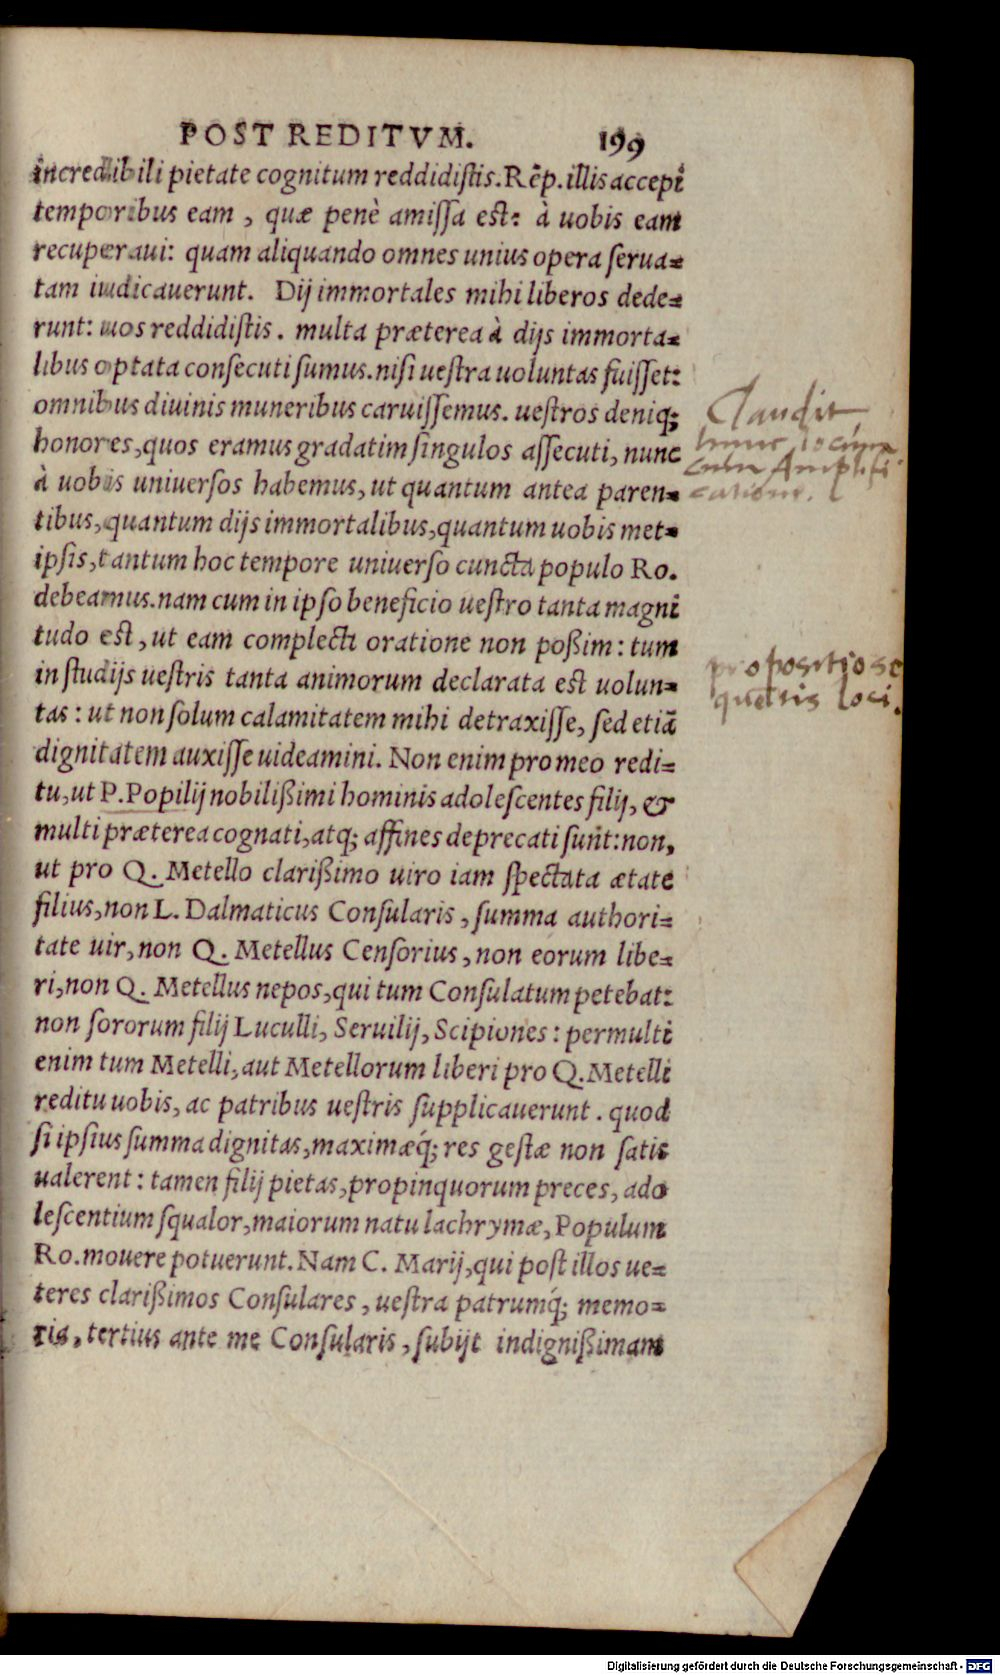 POST REDITVM. 199
incredibili pietate cognitum reddidistis. Rēp. illis accepi
temporibus eam, quæ penè amissa est: à uobis eam
recuperaui: quam aliquando omnes unius opera serua=
tam iudicauerunt. Dij immortales mihi liberos dede=
runt: uos reddidistis. multa præterea à dijs immorta=
libus optata consecuti sumus. nisi uestra uoluntas fuisset:
omnibus diuinis muneribus caruissemus. uestros deniq;
honores, quos eramus gradatim singulos assecuti, nunc
à uobis uniuersos habemus, ut quantum antea paren=
tibus, quantum dijs immortalibus, quantum uobis met=
ipsis, tantum hoc tempore uniuerso cuncta populo Ro.
debeamus. nam cum in ipso beneficio uestro tanta magni
tudo est, ut eam complecti oratione non poßim: tum
in studijs uestris tanta animorum declarata est uolun=
tas: ut non solum calamitatem mihi detraxisse, sed etiā
dignitatem auxisse uideamini. Non enim pro meo redi=
tu, ut P. Popilij nobilißimi hominis adolescentes filij, &
multi præterea cognati, atq; affines deprecati sunt: non,
ut pro Q. Metello clarißimo uiro iam spectata ætate
filius, non L. Dalmaticus Consularis, summa authori=
tate uir, non Q. Metellus Censorius, non eorum libe=
ri, non Q. Metellus nepos, qui tum Consulatum petebat:
non sororum filij Luculli, Seruilij, Scipiones: permulti
enim tum Metelli, aut Metellorum liberi pro Q. Metelli
reditu uobis, ac patribus uestris supplicauerunt. quod
si ipsius summa dignitas, maximæq́; res gestæ non satis
ualerent: tamen filij pietas, propinquorum preces, ado
lescentium squalor, maiorum natu lachrymæ, Populum
Ro. mouere potuerunt. Nam C. Marij, qui post illos ue=
teres clarißimos Consulares, uestra patrumq́; memo=
ria, tertius ante me Consularis, subijt indignißimam
Claudit
hunc locum
cum Amplifi
catione.
propositio se
quentis loci.
Digitalisierung gefördert durch die Deutsche Forschungsgemeinschaft - DFG